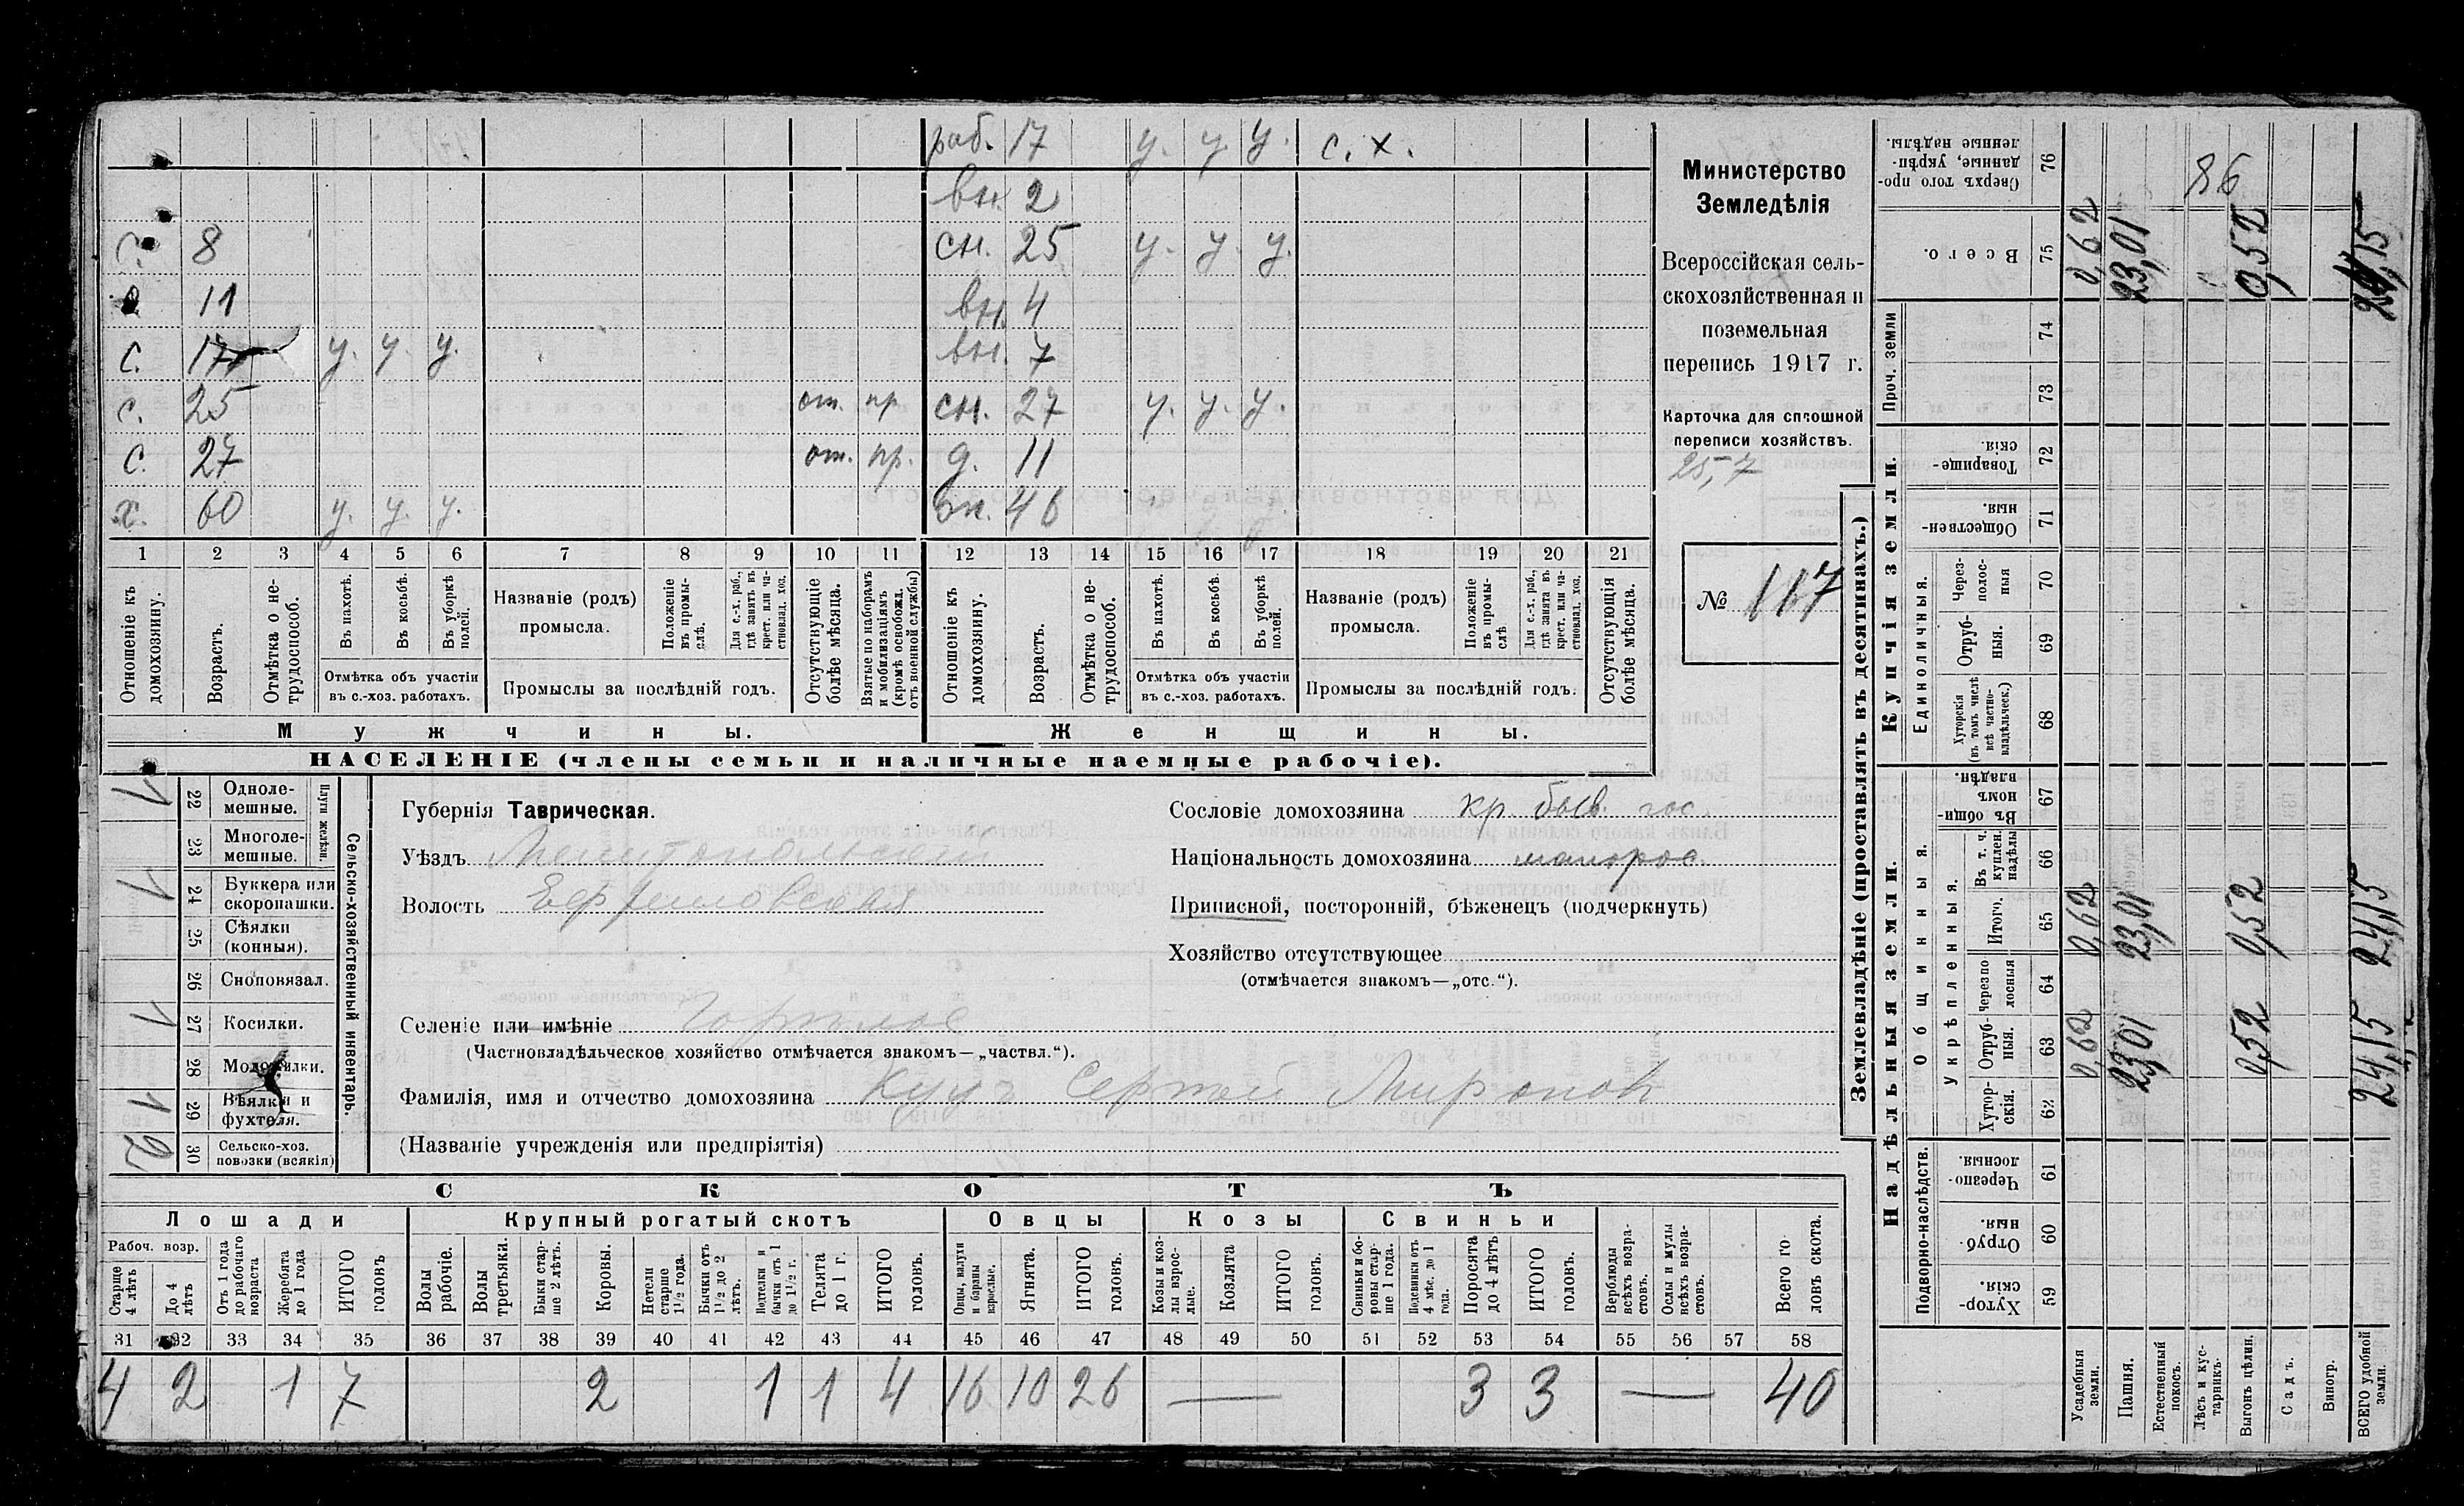 раб. 17 у. у. у. с. х.
вн. 2
с. 8 сн. 25 у. у. у.
11 вн. 4
с. 17 у. у. у. вн. 7
с. 25 от. пр. сн. 27 у. у. у.
с. 27 от. пр. д. 11
х. 60 у. у. у. 46
1 2 3 4 5 6 7 8 9 10 11 12 13 14 15 16 17 18 19 20 21
Отношеніе къ домохозяину.
Возрастъ.
Отмѣтка о не-
трудоспособ.
Въ пахотѣ.
Въ косьбѣ.
Въ уборкѣ
полей.
Отмѣтка объ участіи
въ с.-хоз. работахъ.
Названіе (родъ)
промысла.
Положеніе
въ промы-
слѣ.
Для с.-х. раб.,
гдѣ занятъ въ
крест. или ча-
стновлад. хоз.
Промыслы за послѣдній годъ.
Отсутствующіе
болѣе мѣсяца.
Взятые по наборамъ
и мобилизаціямъ
(кромѣ освобожд.
отъ военной службы)
Отношеніе къ
домохозяину.
Возрастъ.
Отмѣтка о не-
трудоспособ.
Въ пахотѣ.
Въ косьбѣ.
Въ уборкѣ
полей.
Отмѣтка объ участіи
въ с.-хоз. работахъ.
Названіе (родъ)
промысла.
Положеніе
въ промы-
слѣ
Для с.-х. раб.,
гдѣ занята въ
крест. или ча-
стновлад. хоз.
Промыслы за послѣдній годъ.
Отсутствующія
болѣе мѣсяца.
Мужчины.
Женщины.
НАСЕЛЕНІЕ (члены семьи и наличные наемные рабочіе).
Министерство
Земледѣлія
Всероссійская сель-
скохозяйственная и
поземельная
перепись 1917 г.
Карточка для сплошной
переписи хозяйствъ.
25,7
№ 117
1 22 Одноле-
мешные.
23 Многоле-
мешные.
Плуги желѣзн.
1 24 Буккера или
скоропашки.
25 Сѣялки
(конныя).
26 Сноповязал.
1 27 Косилки.
28 Молотилки.
1 29 Вѣялки и
фухтеля.
2 30 Сельско-хоз.
повозки (всякія)
Сельско-хозяйственный инвентарь.
Губернія Таврическая.
Уѣздъ Мелитопольскій
Волость Ефремовская
Селеніе или имѣніе
(Частновладѣльческое хозяйство отмѣчается знакомъ—„частвл.“).
Фамилія, имя и отчество домохозяина Куцъ Сергѣй Миронов
(Названіе учрежденія или предпріятія)
Сословіе домохозяина кр. быв. гос.
Національность домохозяина малорос.
Приписной, посторонній, бѣженецъ (подчеркнуть)
Хозяйство отсутствующее
(отмѣчается знакомъ—„отс.“).
СКОТЪ
Лошади
Крупный рогатый скотъ
Овцы
Козы
Свиньи
Рабоч. возр.
Старше
4 лѣтъ
До 4
лѣтъ
Отъ 1 года
до рабочаго
возраста
Жеребята
до 1 года
ИТОГО
головъ
Волы
рабочіе.
Волы
третьяки.
Быки стар-
ше 2 лѣтъ.
Коровы.
Нетели
старше
1½ года.
Бычки отъ
1½ до 2
лѣтъ.
Подтелки и
бычки отъ 1
до 1½ г.
Телята
до 1 г.
ИТОГО
головъ.
Овцы, валухи
и бараны
взрослые.
Ягнята.
ИТОГО
головъ.
Козы и коз-
лы взрос-
лые.
Козлята
ИТОГО
головъ.
Свиньи и бо-
ровы стар-
ше 1 года.
Подсвинки отъ
4 мѣс. до 1
года.
Поросята
до 4 лѣтъ
ИТОГО
головъ.
Верблюды
всѣхъ возра-
стовъ.
Ослы и мулы
всѣхъ возра-
стовъ.
Всего го
ловъ скота.
31 32 33 34 35 36 37 38 39 40 41 42 43 44 45 46 47 48 49 50 51 52 53 54 55 56 57 58
4 2 1 7 2 1 1 4 16 10 26 — 3 3 — 40
Землевладѣніе (проставлять въ десятинахъ.)
Надѣльныя земли.
Купчія земли.
Проч. земли
Сверхъ того про-
данные, укрѣп-
ленные надѣлы.
76
86
Всего. 75 0,62 23,01 0,52 24,15
74
73
Товарище-
скія.
72
Обществен-
ныя.
71
Единоличныя.
Через-
полос-
ныя
70
Отруб-
ныя.
69
Хуторскія
(въ томъ числѣ
всѣ частно-
владѣльческ.)
68
Въ общи
номъ
владѣн.
67
Общинныя
Укрѣпленныя.
Въ т. ч.
куплен.
надѣлы
66
Итого. 65 0,62 23,01 0,52 24,15
Черезпо
лосныя
64
Отруб-
ныя.
63 0,62 23,01 0,52 24,15
Хутор-
скія.
62
Подворно-наслѣдств.
Черезпо-
лосныя.
61
Отруб-
ныя.
60
Хутор-
скія.
59
Усадебныя
земли.
Пашня.
Естественный
покосъ.
Лѣсъ и кус-
тарникъ.
Выгонъ цѣлин.
Садъ.
Виногр.
ВСЕГО удобной
земли.